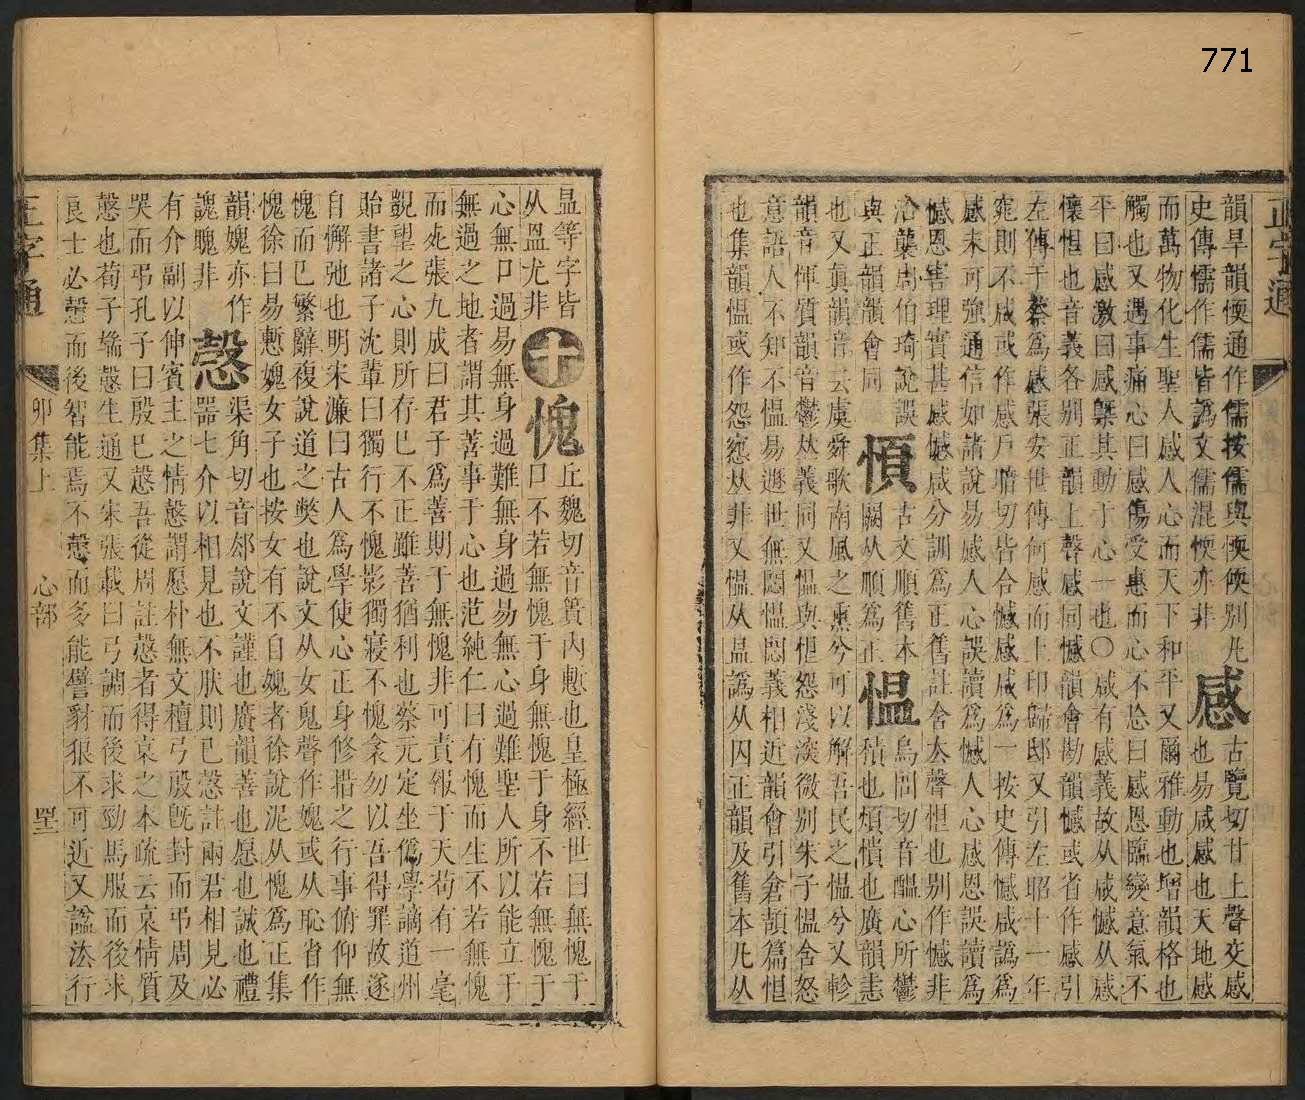 771
正字通
韻旱韻愞通作懦按懦與愞偄別凡
史傳懦作儒皆譌文儒混愞亦非
感
古覽切甘上聲交感
也易咸感也天地感
而萬物化生聖人感人心而天下和平又爾雅動也增韻格也
觸也又遇事痛心曰感傷受惠而心不忘曰感恩臨變意氣不
平曰感激曰感槩其動于心一也〇咸有感義故从咸憾从感
懷恨也音義各別正韻上聲感同憾韻會勘韻憾或省作感引
左傳于蔡爲感張安世傳何感而上印歸邸又引左昭十一年
窕則不咸或作感戶暗切皆合憾感咸爲一按史傳憾咸譌爲
感未可強通信如諸說易感人心誤讀爲憾人心感恩誤讀爲
憾恩害理實甚感憾咸分訓爲正舊註含去聲恨也別作憾非
沿蘘周伯琦說誤
愩
古文順舊本
闕从順爲正
慍
烏問切音醞心所鬱
積也煩憒也廣韻恚
與正韻韻會同
也又眞韻音云虞舜歌南風之熏兮可以解吾民之慍兮又軫
韻音惲質韻音鬱𠀤義同又慍與恨怨淺深微別朱子慍含怒
意語人不知不慍易遯世無悶慍悶義相近韻會引倉頡篇恨
也集韻慍或作怨寃𠀤非又慍从昷譌从囚正韻及舊本凡从
昷等字皆
从𥁕尤非
十
愧
丘魏切音簣內慙也皇極經世曰無愧于
口不若無愧于身無愧于身不若無愧于
心無口過易無身過難無身過易無心過難聖人所以能立于
無過之地者謂其善事于心也范純仁曰有愧而生不若無愧
而死張九成曰君子爲善期于無愧非可責報于天苟有一毫
覬望之心則所存巳不正雖善猶利也蔡元定坐僞學謫道州
貽書諸子沈輩曰獨行不愧影獨寢不愧衾勿以吾得罪故遂
自懈弛也明宋濂曰古人爲學使心正身修措之行事俯仰無
愧而巳繁辭複說道之獘也說文从女鬼聲作媿或从恥省作
愧徐曰易慙媿女子也按女有不自媿者徐說泥从愧爲正集
韻媿亦作
謉䁛非
慤
渠角切音郄說文謹也廣韻善也愿也誠也禮
器七介以相見也不肰則巳慤註兩君相見必
有介副以伸賓主之情慤謂愿朴無文檀弓殷旣封而弔周及
哭而弔孔子曰殷巳慤吾從周註慤者得哀之本疏云哀情質
慤也荀子端慤生通又宋張載曰弓調而後求勁馬服而後求
良士必慤而後智能焉不慤而多能譬豺狼不可近又諡法行
正字通
卯集上
心部